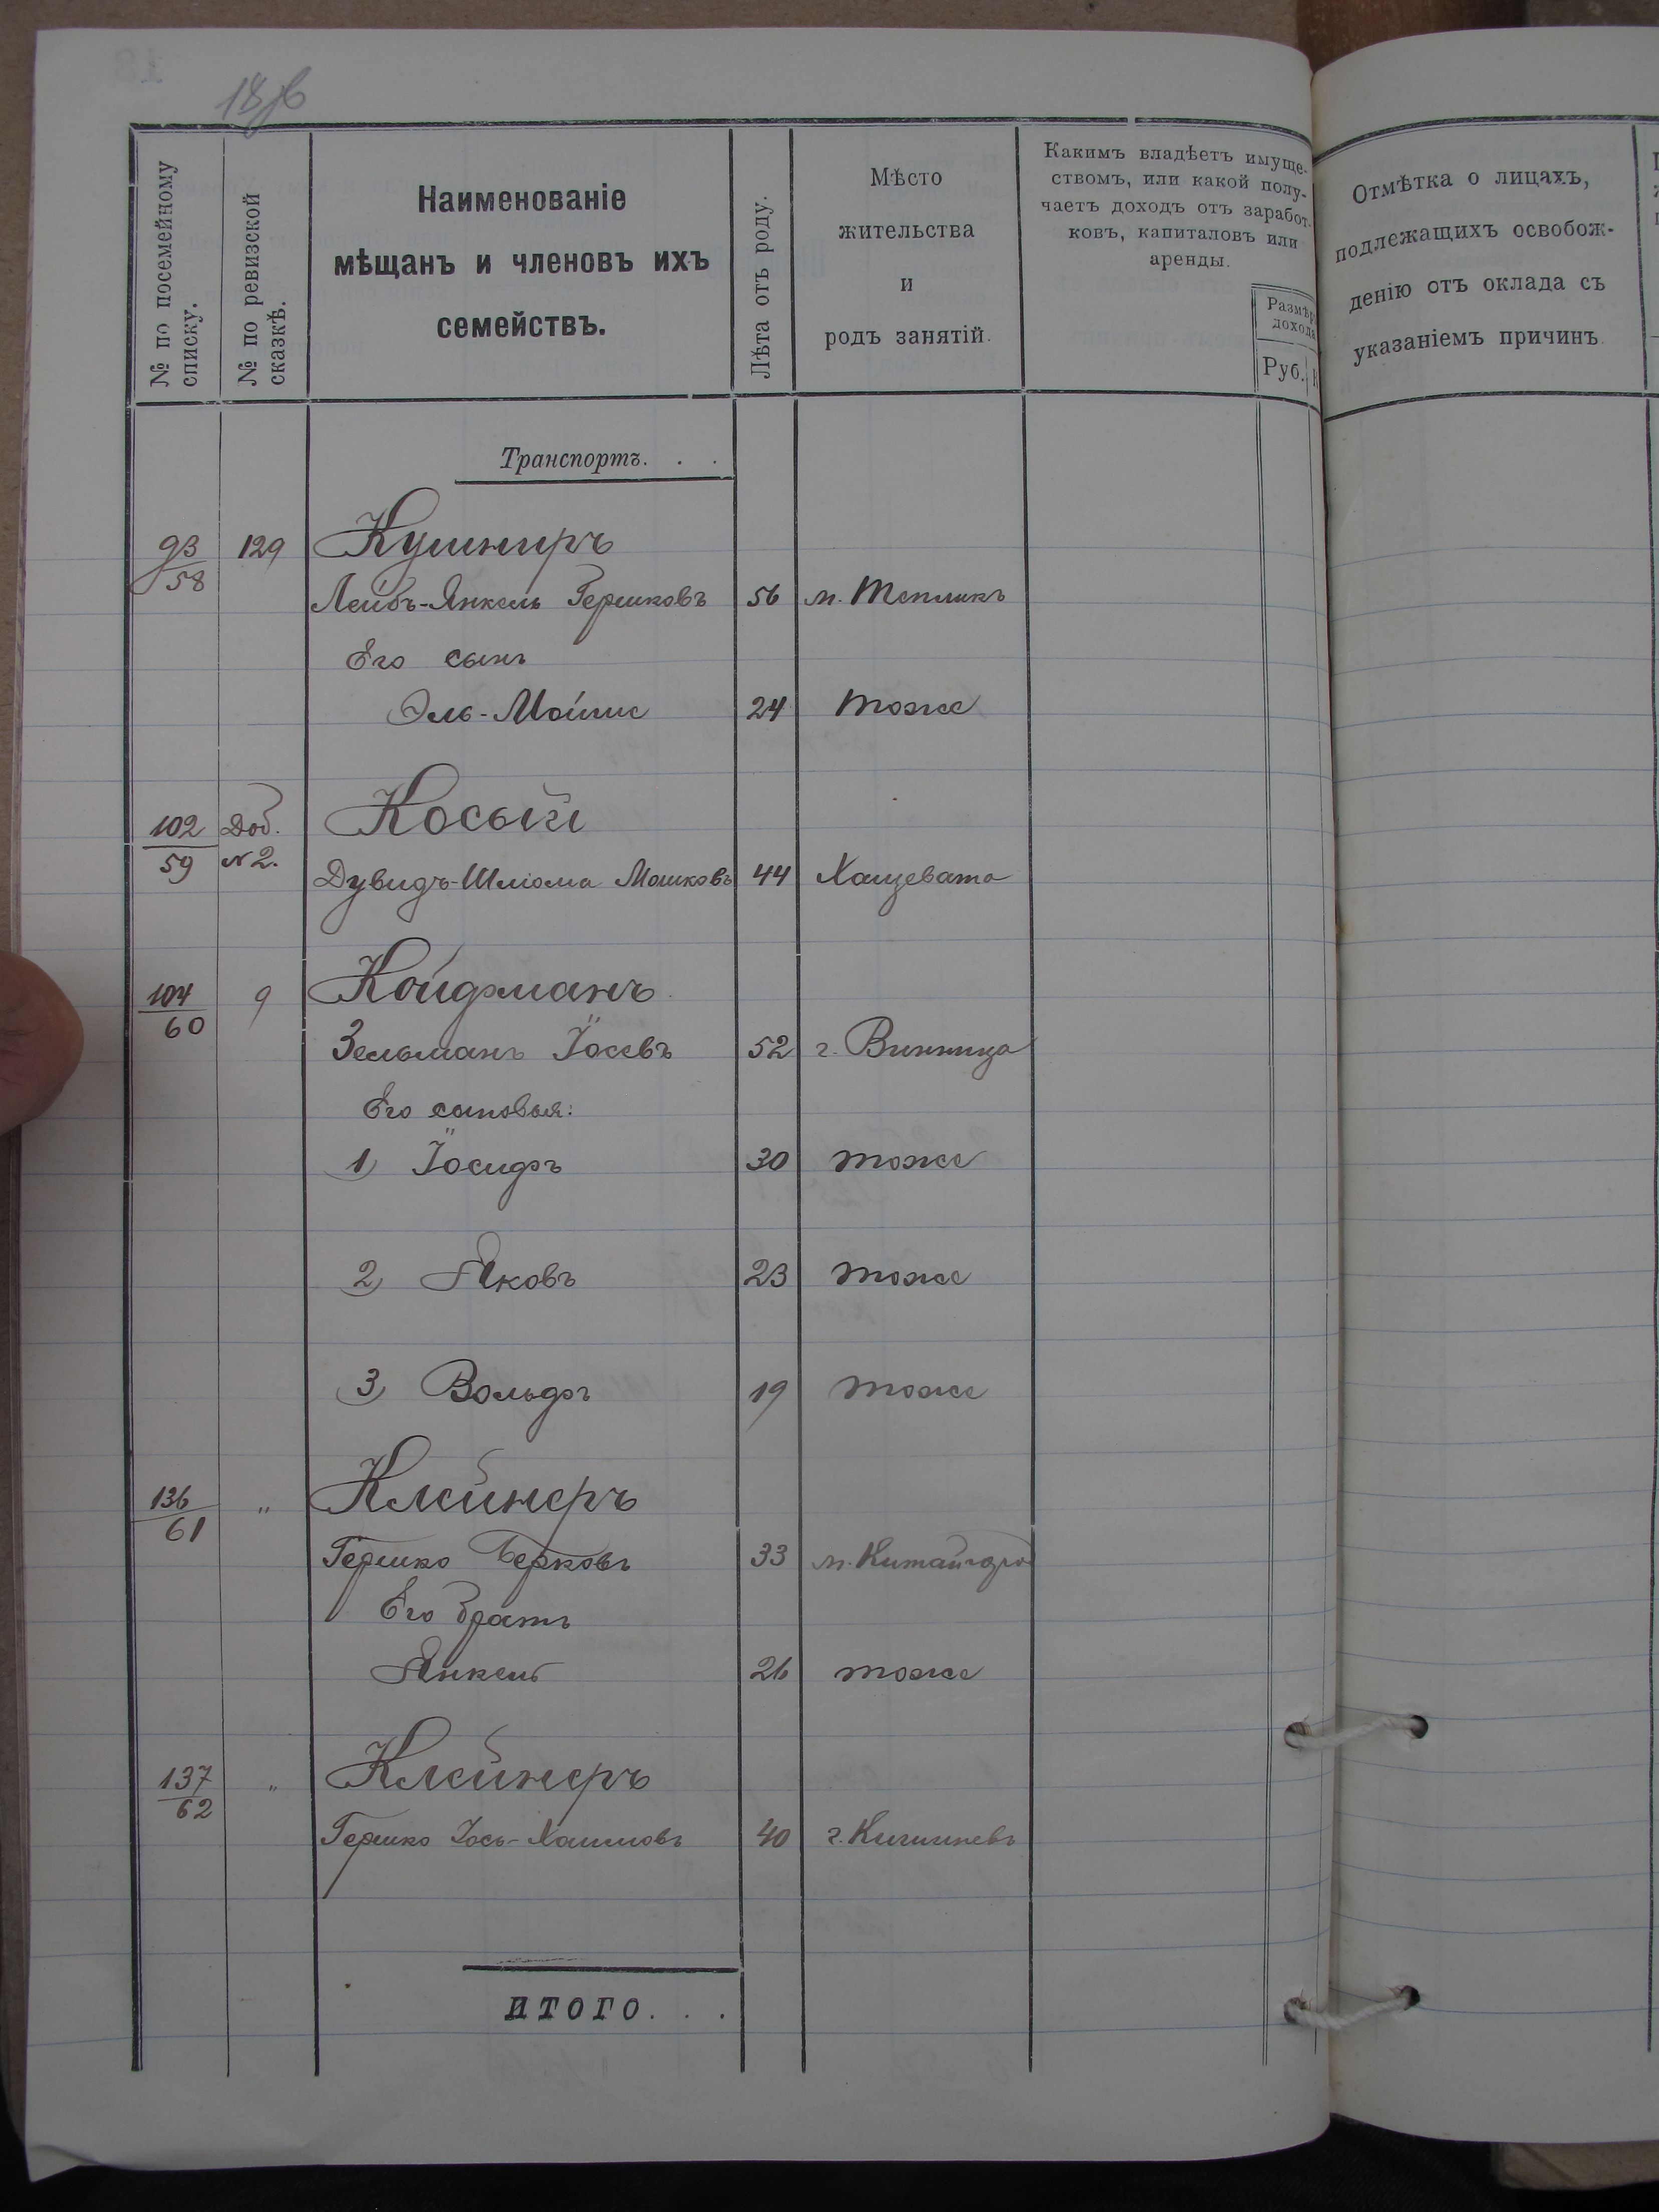 18 об
№ по посемейному списку.
№ по ревизской сказкѣ.
Наименованіе
мѣщанъ и членовъ ихъ
семействъ.
Лѣта отъ роду.
Мѣсто
жительства
и
родъ занятій.
Какимъ владѣетъ имуще-
ствомъ, или какой полу-
чаетъ доходъ отъ заработ-
ковъ, капиталовъ или
аренды.
Размѣръ
дохода
Руб.
Отмѣтка о лицахъ,
подлежащихъ освобож-
денію отъ оклада съ
указаніемъ причинъ.
Транспортъ. . .
93/58 129 Кушниръ
Лейбъ-Янкель Гершковъ 56 м. Тепликъ
Его сынъ
Эль-Мойше 24 тоже
102/59 Доб. №2. Косый
Дувидъ-Шліома Мошковъ 44 Хащевата
104/60 9 Койфманъ
Зельманъ Іосевъ 52 г. Винница
Его сыновья:
1) Іосифъ 30 тоже
2) Яковъ 23 тоже
3) Вольфъ 19 тоже
136/61 " Клейнеръ
Гершко Берковъ 33 м. Китайгород
Его братъ
Янкель 26 тоже
137/62 " Клейнеръ
Гершко Іось-Хаимовъ 40 г. Кишиневъ
ИТОГО. . .